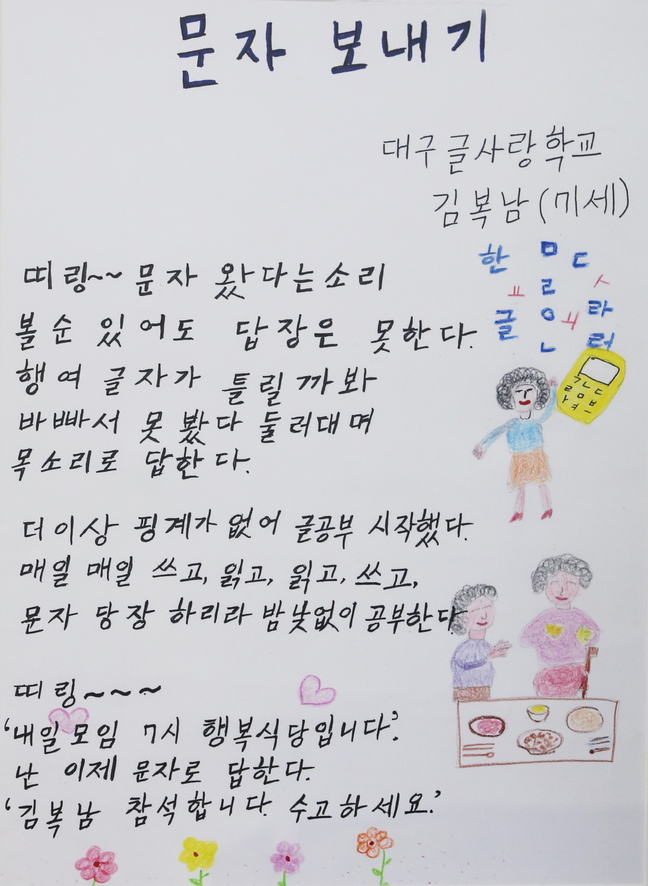 문자 보내기
대구글사랑학교
김복남(71세)
띠링~~ 문자 왔다는소리
볼순 있어도 답장은 못한다.
행여 글자가 틀릴까봐
바빠서 못 봤다 둘러대며
목소리로 답한다.
더이상 핑계가 없어 글공부 시작했다.
매일 매일 쓰고, 읽고, 읽고, 쓰고,
문자 당장 하리라 밤낮없이 공부한다
띠링~~~
'내일모임 7시 행복식당입니다.'
난 이제 문자로 답한다.
'김복남 참석합니다. 수고하세요.'
한 ㅁ ㄷ
ㅛ ㄹ ㅅ
글 ㅇ ㅕ 라
ㄴ 러